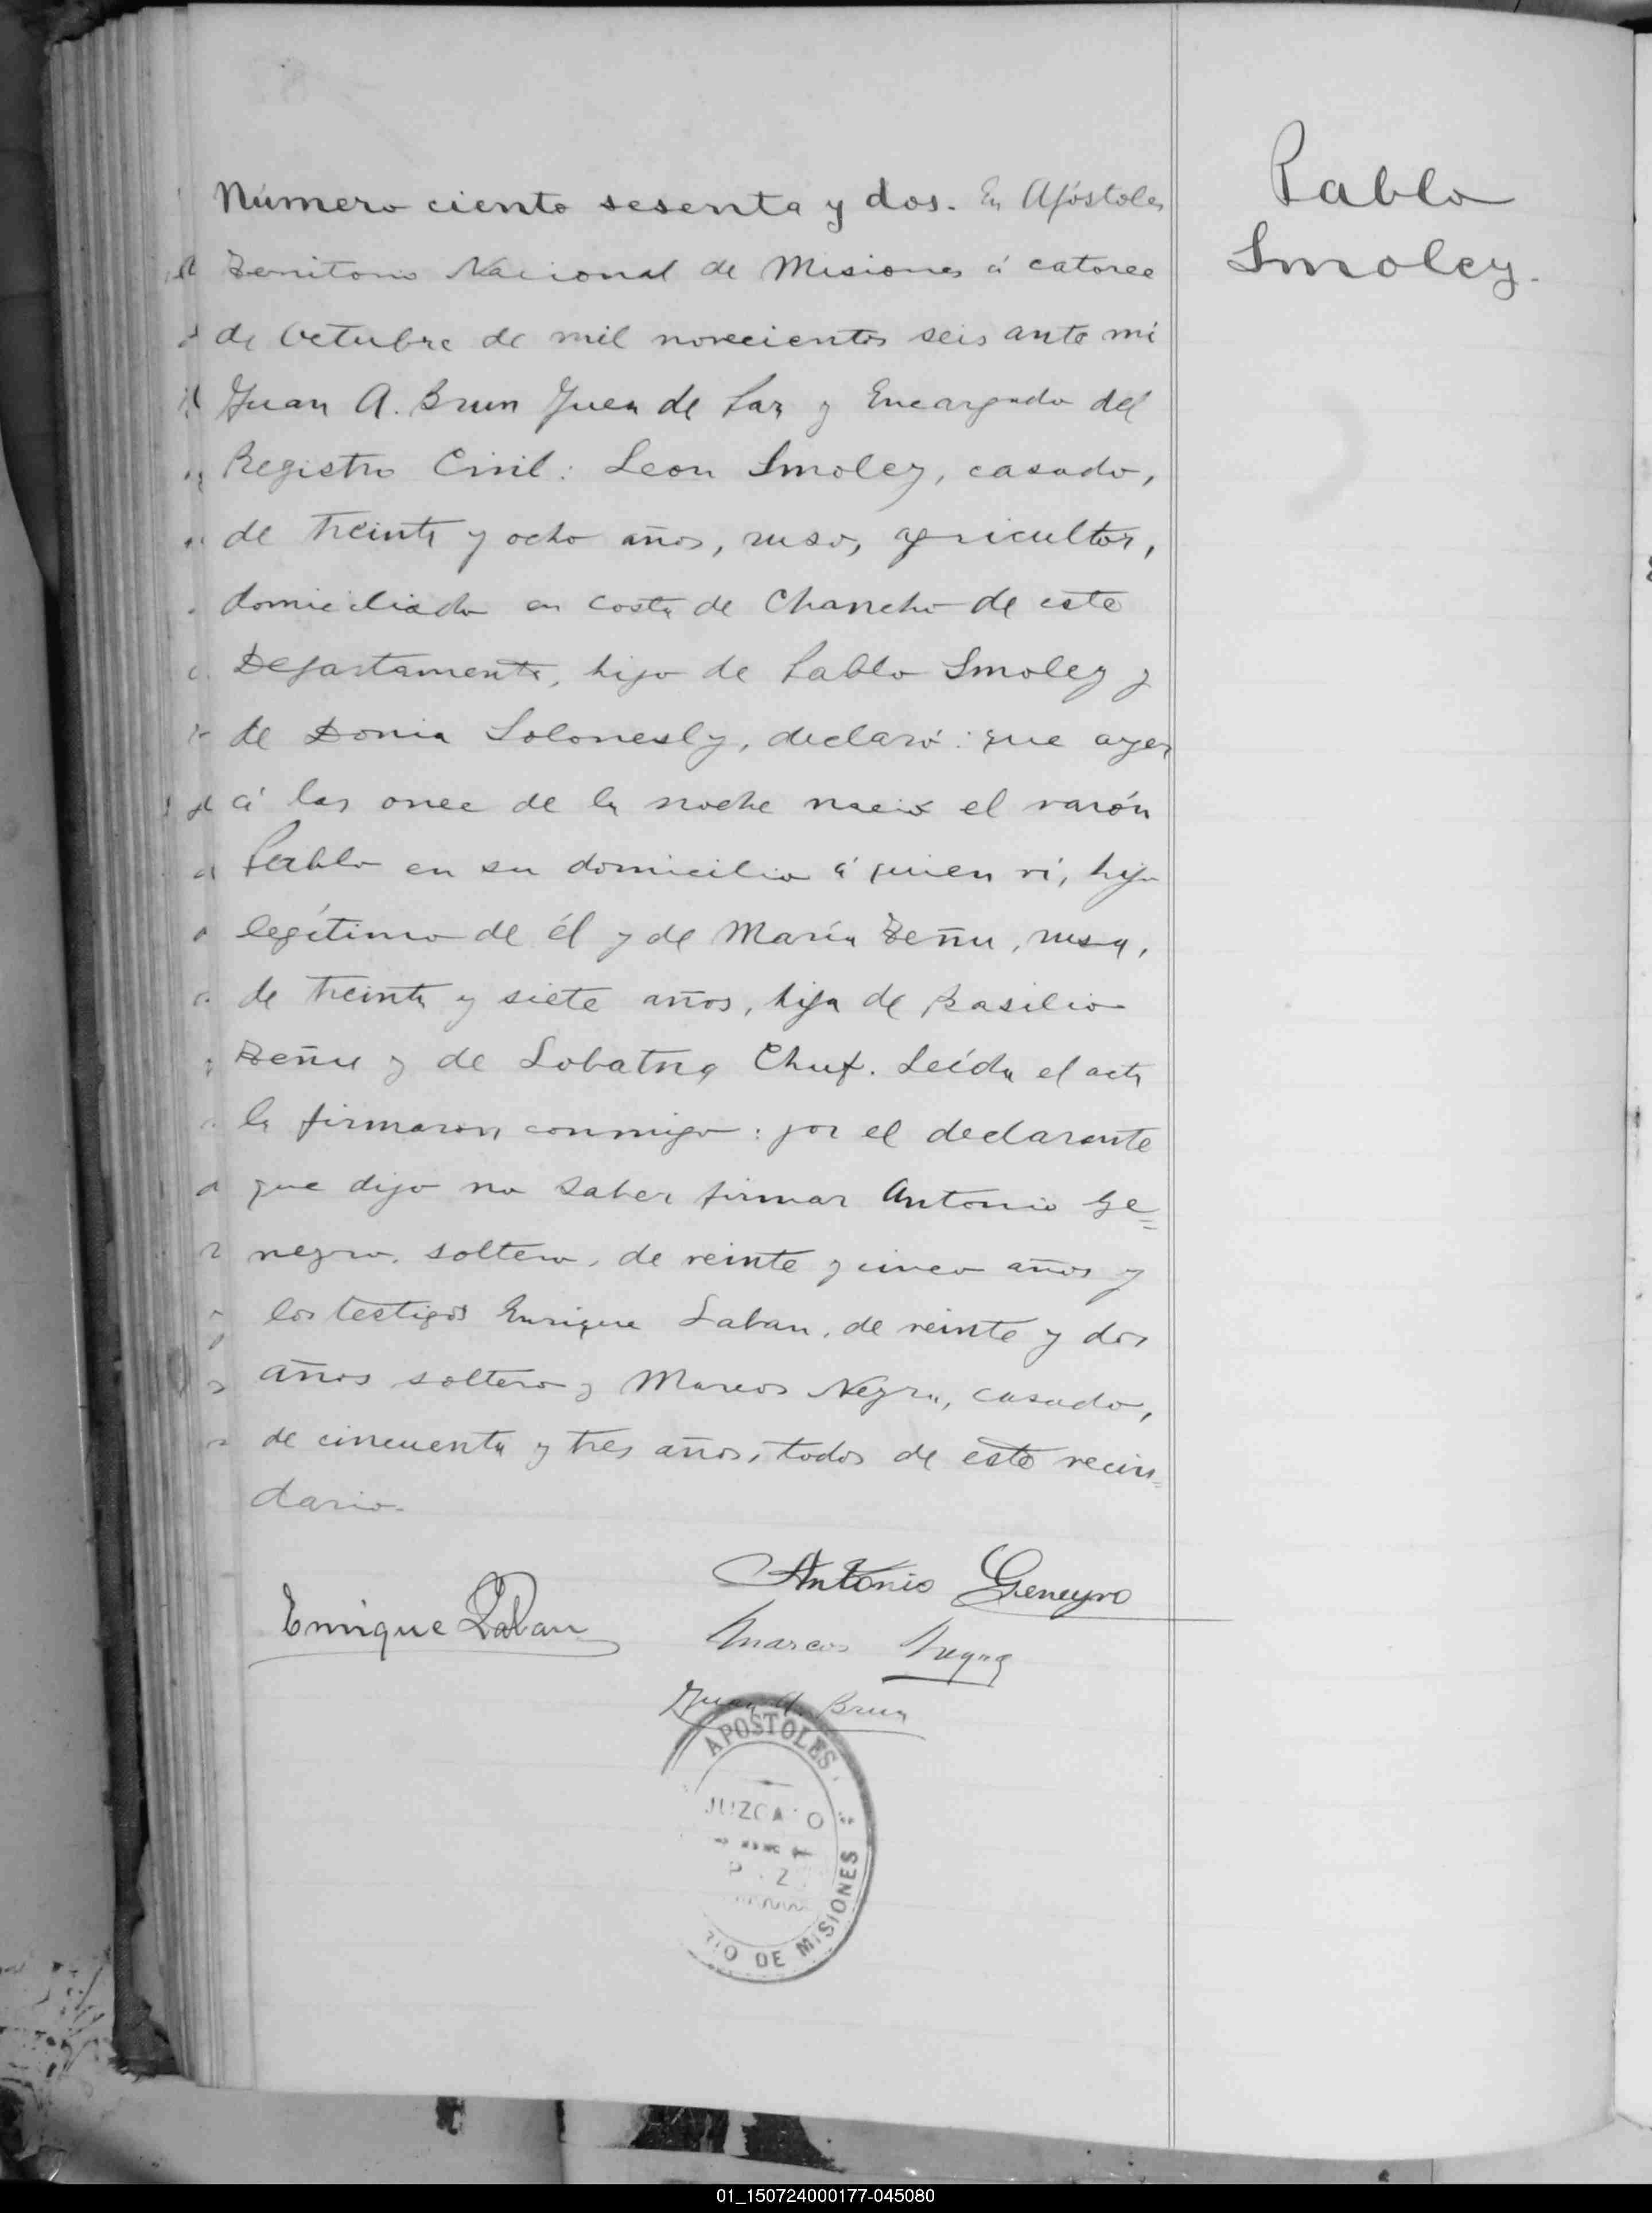 Pablo
Smoley.
Número ciento sesenta y dos. En Apóstoles
Territorio Nacional de Misiones á catorce
de Octubre de mil novecientos seis ante mi
Juan A. Brun Juez de Paz y Encargado del
Registro Civil: Leon Smoley, casado,
de treinta y ocho años, ruso, agricultor,
domiciliado en costa de Chancho de este
Departamento, hijo de Pablo Smoley y
de Donia Solonesly, declaró: que ayer
á las once de la noche nació el varón
Pablo en su domicilio á quien ví, hijo
legítimo de él y de María Zeñu, rusa,
de treinta y siete años, hija de Basilio
Zeñu y de Lobatna Chuf. Leída el acta
la firmaron conmigo: por el declarante
que dijo no saber firmar Antonio Ge=
neyro, soltero, de veinte y cinco años y
los testigos Enrique Laban, de veinte y dos
años soltero y Marcos Negra, casado,
de cincuenta y tres años, todos de este vecin=
dario.
Antonio Geneyro
Enrique Laban
Marcos Negra
Juan A. Brun
APOSTOLES
JUZGADO
DE MISIONES
01_150724000177-045080